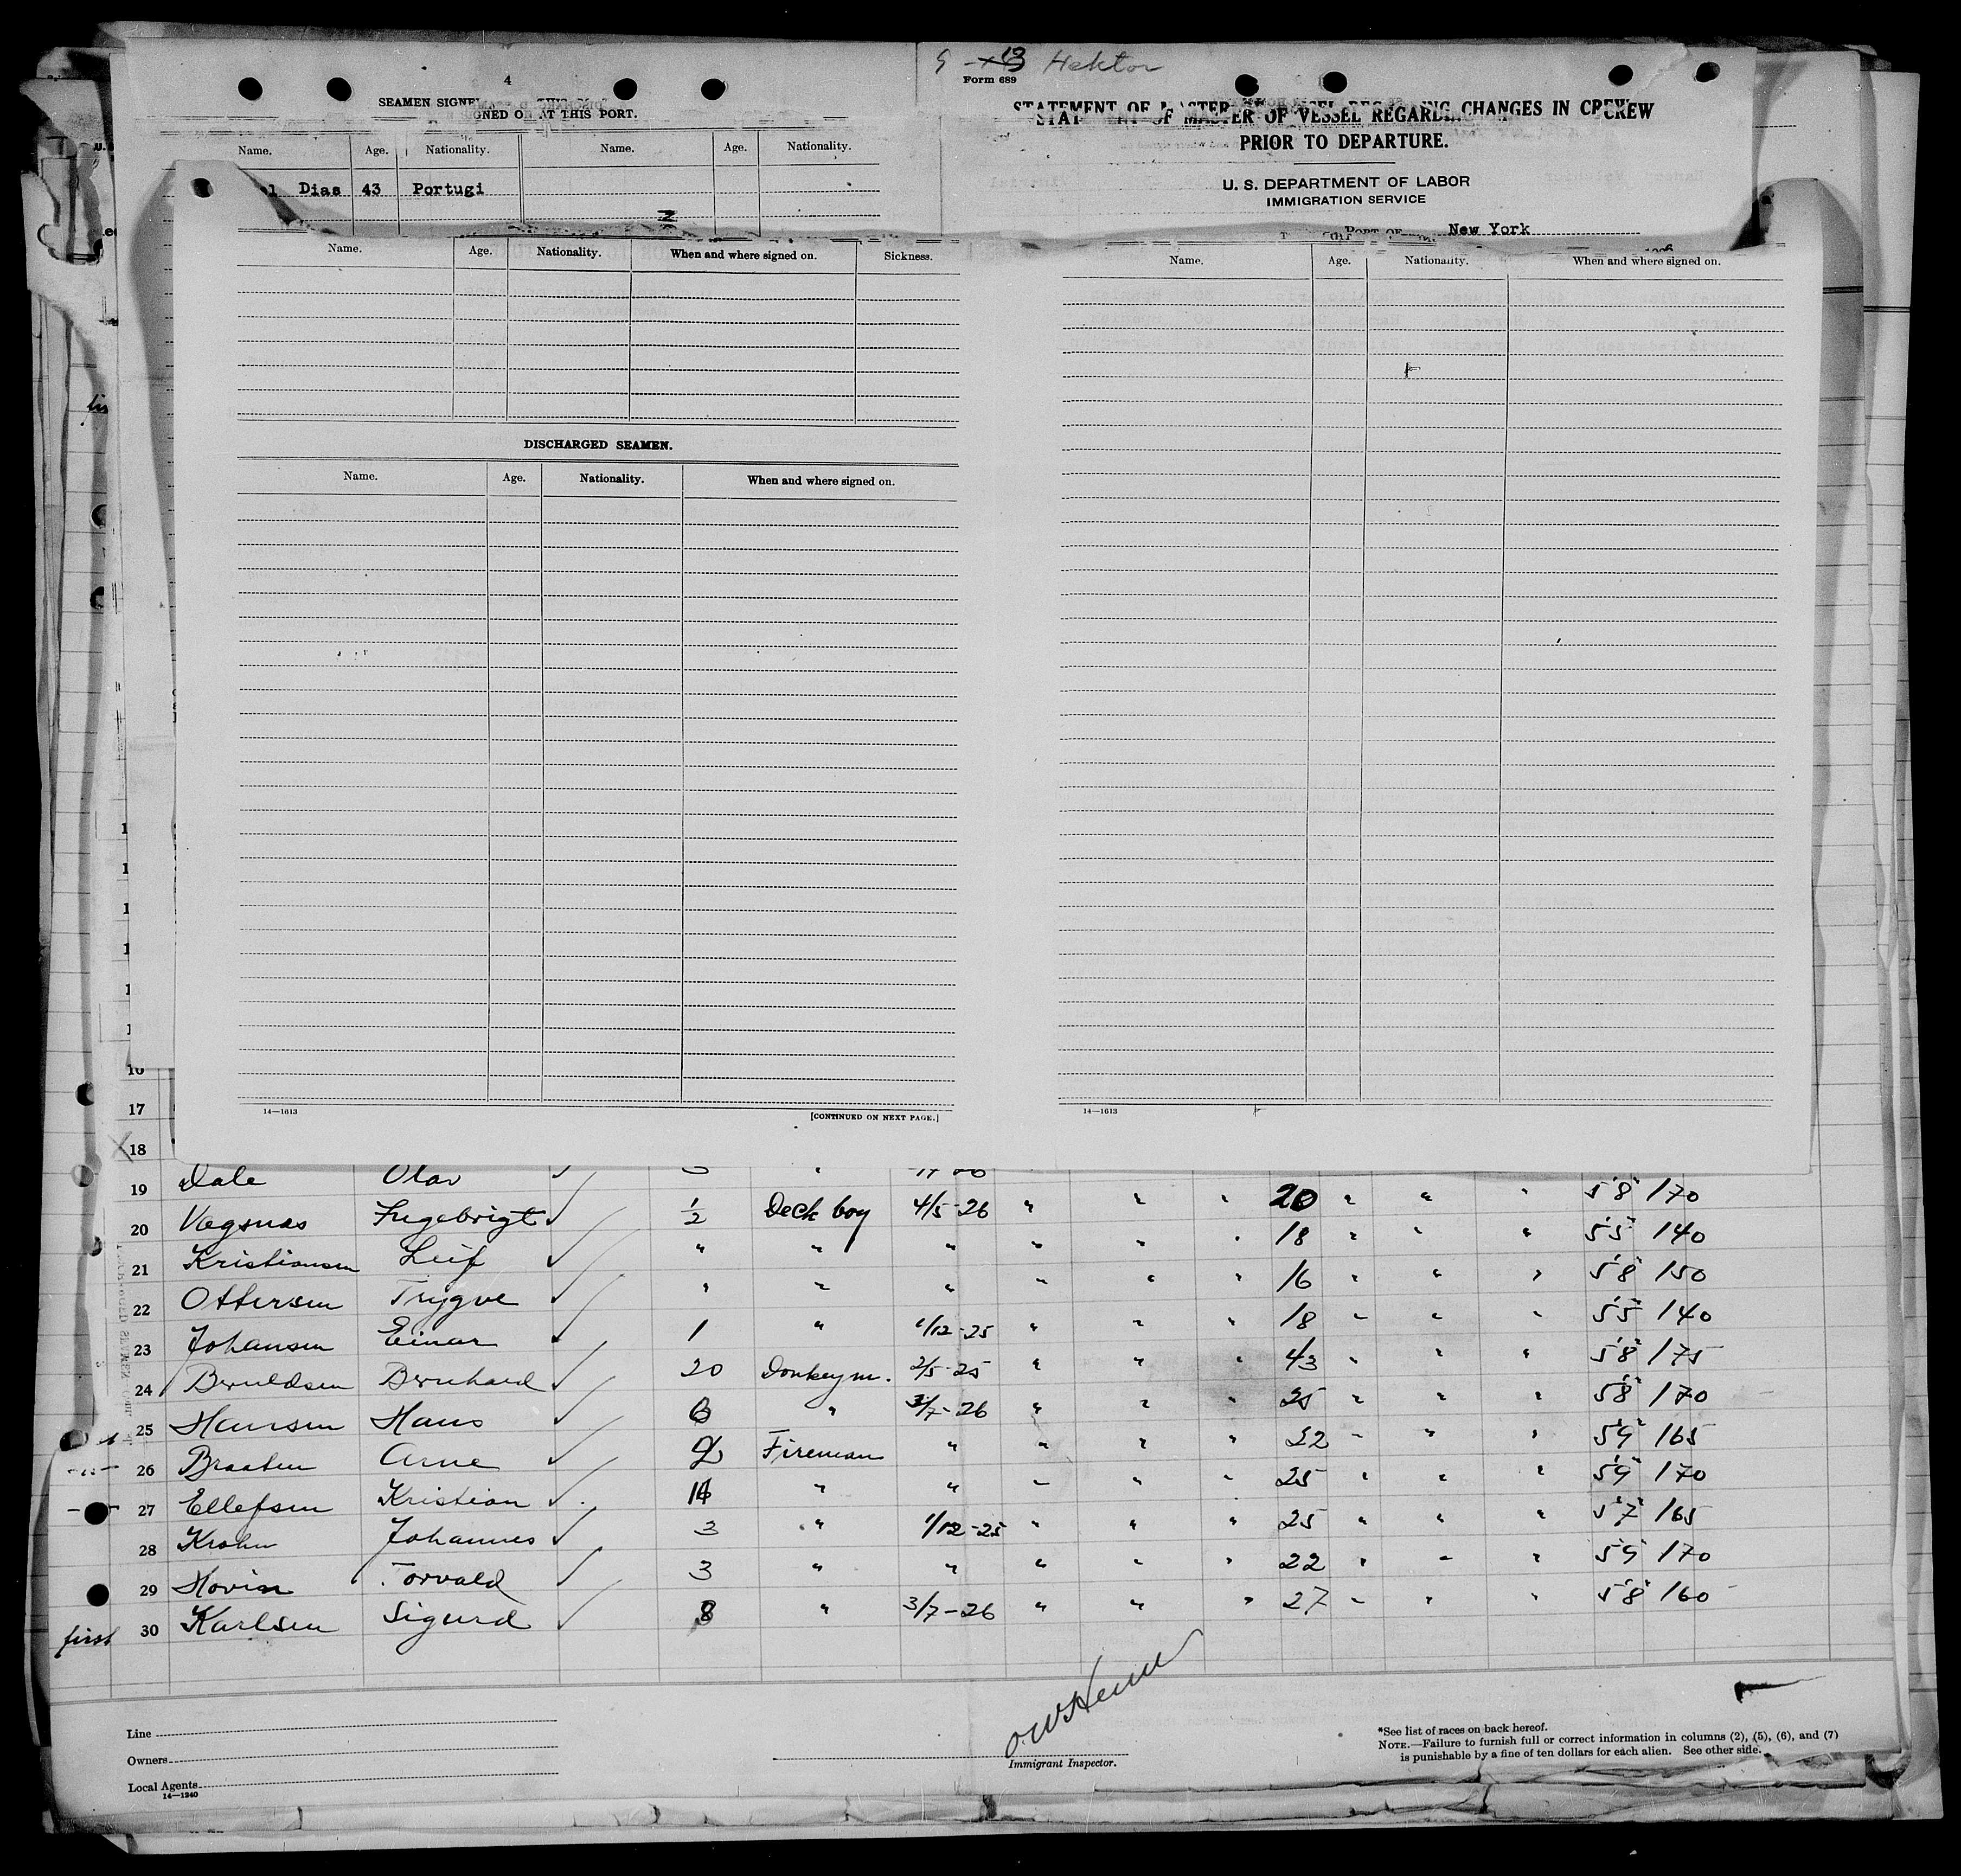 Hektor
Form 689
4
SEAMEN SIGNE
GNED ON AT THIS PORT.
STATEMENT OF MASTER OF VESSEL REGARDING CHANGES IN CREW
PRIOR TO DEPARTURE.
U. S. DEPARTMENT OF LABOR
IMMIGRATION SERVICE
PORT OF New York
Name. Age. Nationality. Name. Age. Nationality.
el Dias 43 Portugi
Name. Age. Nationality. When and where signed on. Sickness.
Name. Age. Nationality. When and where signed on.
DISCHARGED SEAMEN.
Name. Age. Nationality. When and where signed on.
14—1613 [CONTINUED ON NEXT PAGE.]
14—1613
16
17
18
19 Dale Olav 20 " " " 5'8" 170
20 Vagsnas Ingebrigt ✓ 1/2 Deck boy 4/5-26 " " " 18 " " " 5'5" 140
21 Kristiansen Leif ✓ " " " " " " 16 " " " 5'8" 150
22 Ottersen Trygve ✓ " " " " " " 18 " " " 5'5" 140
23 Johansen Einar ✓ 1 " 1/12-25 " " " 43 " " " 5'8" 175
24 Beruldsen Bernhard ✓ 20 Donkeym. 2/5-25 " " " 25 " " " 5'8" 170
25 Hansen Hans ✓ 6 " 3/7-26 " " " 22 " " " 5'9" 165
26 Braaten Arne ✓ 2 Fireman " " " " 25 " " " 5'9" 170
27 Ellefsen Kristian ✓ " " " " " 25 " " " 5'7" 165
28 Krohn Johannes ✓ 3 " 1/12-25 " " " 22 " " " 5'9" 170
29 Hovin Torvald ✓ 3 " " " " " 27 " " " 5'8" 160
first 30 Karlsen Sigurd ✓ 8 " 3/7-26 " " "
Line
Owners
Local Agents
14—1240
Immigrant Inspector.
*See list of races on back hereof.
NOTE.—Failure to furnish full or correct information in columns (2), (5), (6), and (7)
is punishable by a fine of ten dollars for each alien. See other side.